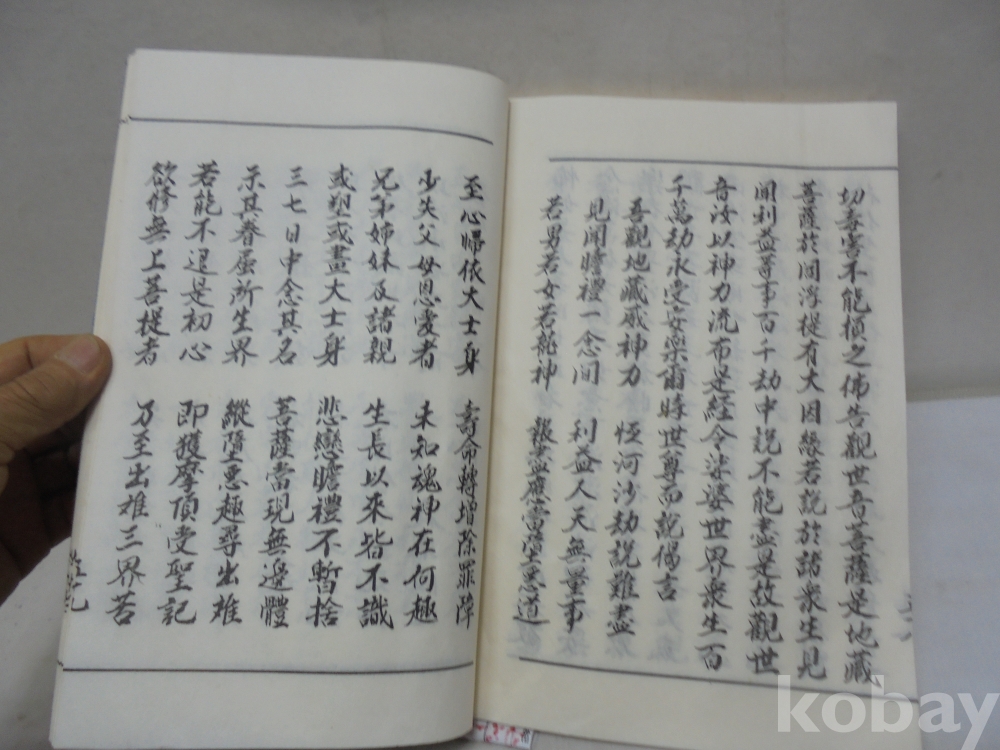 切毒害不能損之佛告觀世音菩薩是地藏
菩薩於閻浮提有大因緣若說於諸眾生見
聞利益等事百千劫中說不能盡是故觀世
音汝以神力流布是經令娑婆世界眾生百
千萬劫永受安樂爾時世尊而說偈言
吾觀地藏威神力 恒河沙劫說難盡
見聞瞻禮一念間 利益人天無量事
若男若女若龍神 報盡應當墮惡道
至心歸依大士身 壽命轉增除罪障
少失父母恩愛者 未知魂神在何趣
兄弟姊妹及諸親 生長以來皆不識
或塑或畫大士身 悲戀瞻禮不暫捨
三七日中念其名 菩薩當現無邊體
示其眷屬所生界 縱墮惡趣尋出離
若能不退是初心 即獲摩頂受聖記
欲修無上菩提者 乃至出離三界苦
kobay